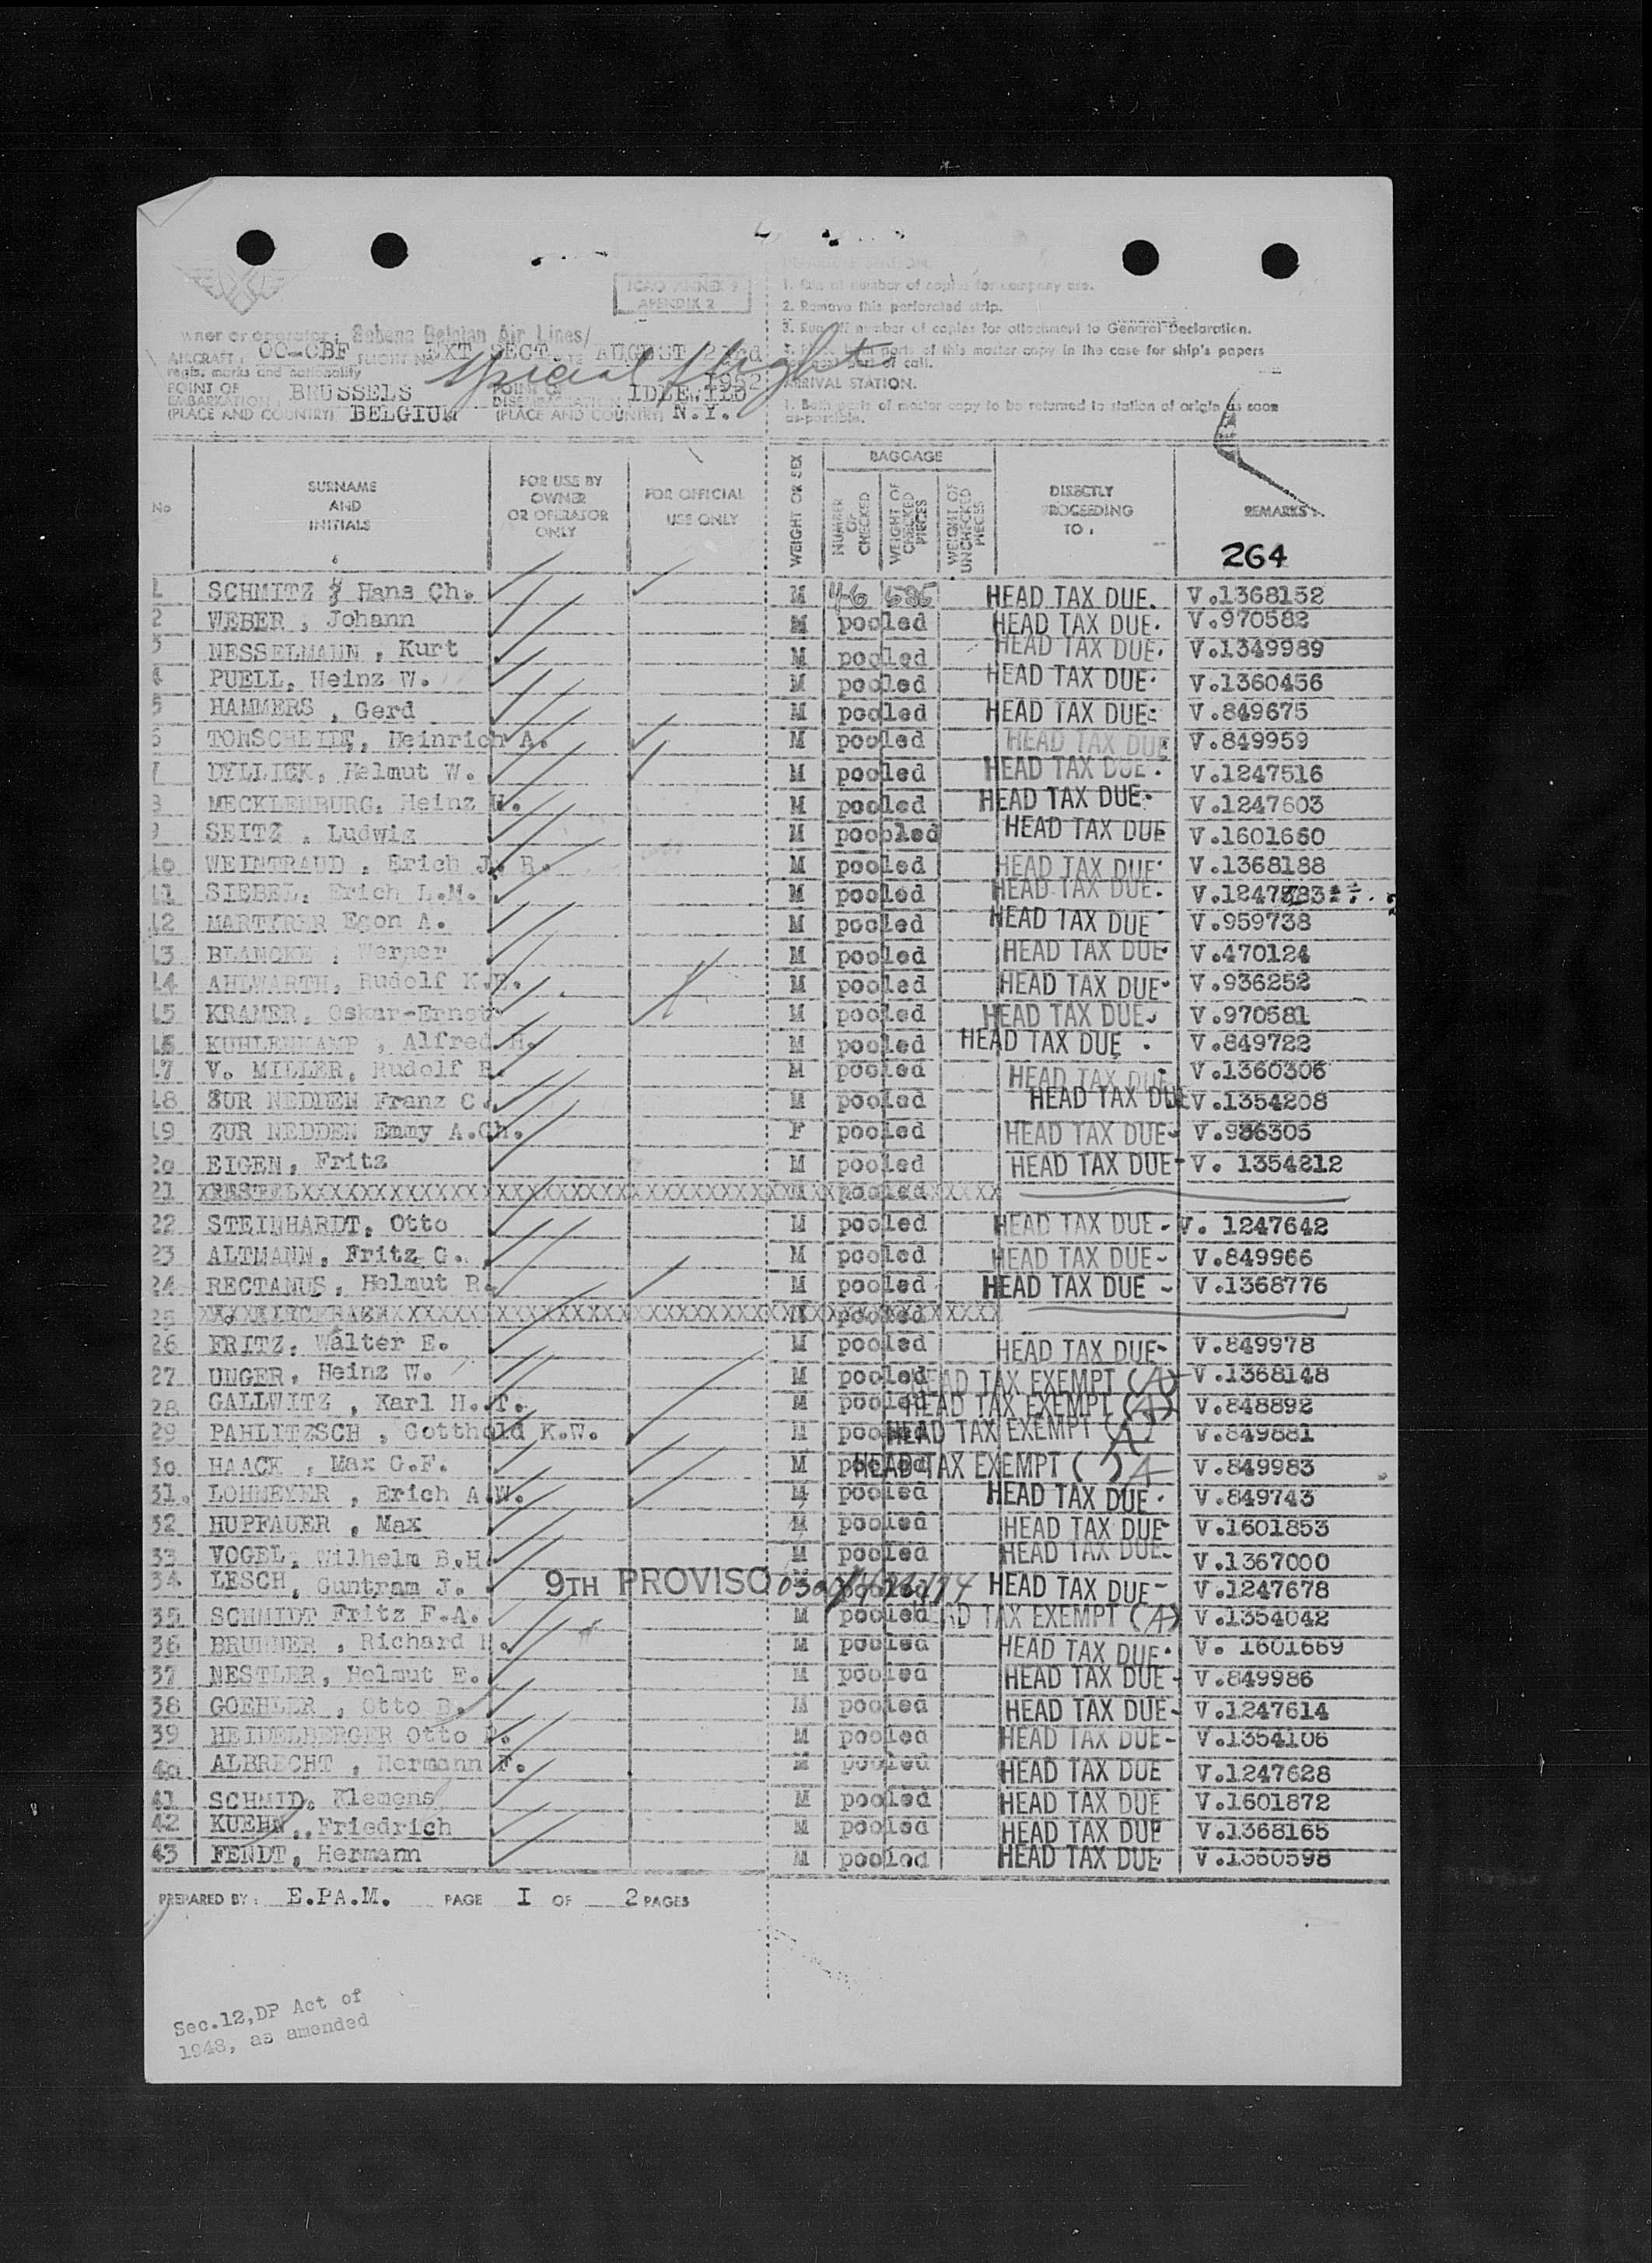 ICAO ANNEX 9
APENDIX 2
1. Run of number of copies for company use.
2. Remove this perforated strip.
3. Run off number of copies for attachment to General Declaration.
parts of this master copy in the case for ship's papers
of call.
ARRIVAL STATION.
1. Both parts of master copy to be returned to station of origin as soon
as possible.
wner or operator : Sabena Belgian Air Lines/
AIRCRAFT : OO-CBF FLIGHT No EXT SECT. AUGUST 22nd
regis. marks and nationality 1952
Special flight
POINT OF EMBARKATION BRUSSELS POINT OF IDLEWILD
(PLACE AND COUNTRY) BELGIUM (PLACE AND COUNTRY) N.Y.
No SURNAME AND INITIALS FOR USE BY OWNER OR OPERATOR ONLY FOR OFFICIAL USE ONLY WEIGHT OR SEX BAGGAGE NUMBER OF CHECKED WEIGHT OF CHECKED PIECES WEIGHT OF UNCHECKED PIECES DISECTLY PROCEEDING TO : REMARKS
264
1 SCHMITZ , Hans Ch. M 46 HEAD TAX DUE. V.1368152
2 WEBER , Johann M pooled HEAD TAX DUE. V.970582
3 NESSELMANN , Kurt M pooled HEAD TAX DUE. V.1349989
4 PUELL, Heinz W. M pooled HEAD TAX DUE. V.1360456
5 HAMMERS , Gerd M pooled HEAD TAX DUE. V.849675
6 TONSCHEIDT, Heinrich A. M pooled HEAD TAX DUE V.849959
7 DYLLICK, Helmut W. M pooled HEAD TAX DUE. V.1247516
8 MECKLENBURG, Heinz W. M pooled HEAD TAX DUE. V.1247603
9 SEITZ , Ludwig M poopled HEAD TAX DUE V.1601660
10 WEINTRAUD , Erich J. R. M pooled HEAD TAX DUE V.1368188
11 SIEBEL, Erich L.M. M pooled HEAD TAX DUE.
12 MARTYRER Egon A. M pooled HEAD TAX DUE V.959738
13 BLANCKE , Werner M pooled HEAD TAX DUE V.470124
14 AHLWARTH, Rudolf K. M pooled HEAD TAX DUE V.936252
15 KRAMER, Oskar-Ernst M pooled HEAD TAX DUE. V.970581
16 KUHLENKAMP , Alfred H. M pooled HEAD TAX DUE . V.849722
17 V. MILLER, Rudolf M pooled HEAD TAX DUE V.1360306
18 ZUR NEDDEN Franz C. M pooled HEAD TAX DUE V.1354208
19 ZUR NEDDEN Emmy A.Ch. F pooled HEAD TAX DUE V.936305
20 EIGEN, Fritz M pooled HEAD TAX DUE V. 1354212
21 pooled
22 STEINHARDT, Otto M pooled HEAD TAX DUE - V. 1247642
23 ALTMANN, Fritz G. M pooled HEAD TAX DUE - V.849966
24 RECTANUS, Helmut R. M pooled HEAD TAX DUE - V.1368776
25 pooled
26 FRITZ, Walter E. M pooled HEAD TAX DUE- V.849978
27 UNGER, Heinz W. M pooled HEAD TAX EXEMPT (A) V.1368148
28 GALLWITZ , Karl H. T. M pooled HEAD TAX EXEMPT (A) V.848892
29 PAHLITZSCH , Gotthold K.W. M pooled HEAD TAX EXEMPT (A) V.849881
30 HAACK , Max G.F. M pooled HEAD TAX EXEMPT ( ) A V.849983
31. LOHMEYER , Erich A.W. M pooled HEAD TAX DUE . V.849743
32 HUPFAUER , Max M pooled HEAD TAX DUE V.1601853
33 VOGEL, Wilhelm B.H. M pooled HEAD TAX DUE- V.1367000
34 LESCH, Guntram J. 9TH PROVISO pooled HEAD TAX DUE- V.1247678
35 SCHMIDT Fritz F.A. M pooled HEAD TAX EXEMPT (A) V.1354042
36 BRUNNER , Richard M pooled HEAD TAX DUE. V. 1601669
37 NESTLER, Helmut E. M pooled HEAD TAX DUE - V.849986
38 GOEHLER , Otto M pooled HEAD TAX DUE- V.1247614
39 HEIDELBERGER Otto M pooled HEAD TAX DUE- V.1354106
40 ALBRECHT , Hermann F. M pooled HEAD TAX DUE V.1247628
41 SCHMID, Klemens M pooled HEAD TAX DUE V.1601872
42 KUEHN ,Friedrich M pooled HEAD TAX DUE V.1368165
43 FENDT, Hermann M pooled HEAD TAX DUE V.1360598
PREPARED BY : E.PA.M. PAGE I OF 2 PAGES
Sec.12,DP Act of
1948, as amended